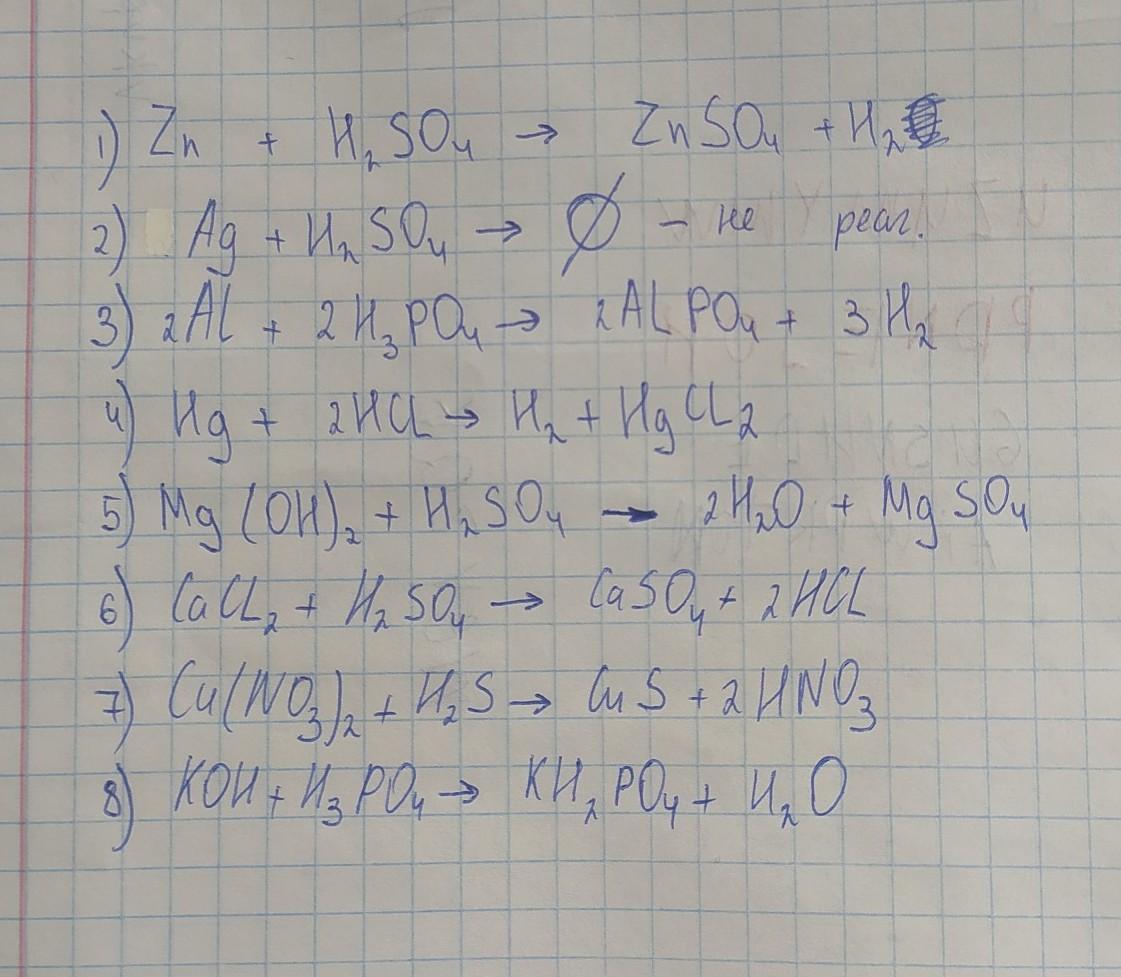 1) Zn + H₂SO₄ → ZnSO₄ + H₂
2) Ag + H₂SO₄ → ∅ – не реаг.
3) 2Al + 2H₃PO₄ → 2AlPO₄ + 3H₂
4) Hg + 2HCl → H₂ + HgCl₂
5) Mg(OH)₂ + H₂SO₄ → 2H₂O + MgSO₄
6) CaCl₂ + H₂SO₄ → CaSO₄ + 2HCl
7) Cu(NO₃)₂ + H₂S → CuS + 2HNO₃
8) KOH + H₃PO₄ → KH₂PO₄ + H₂O